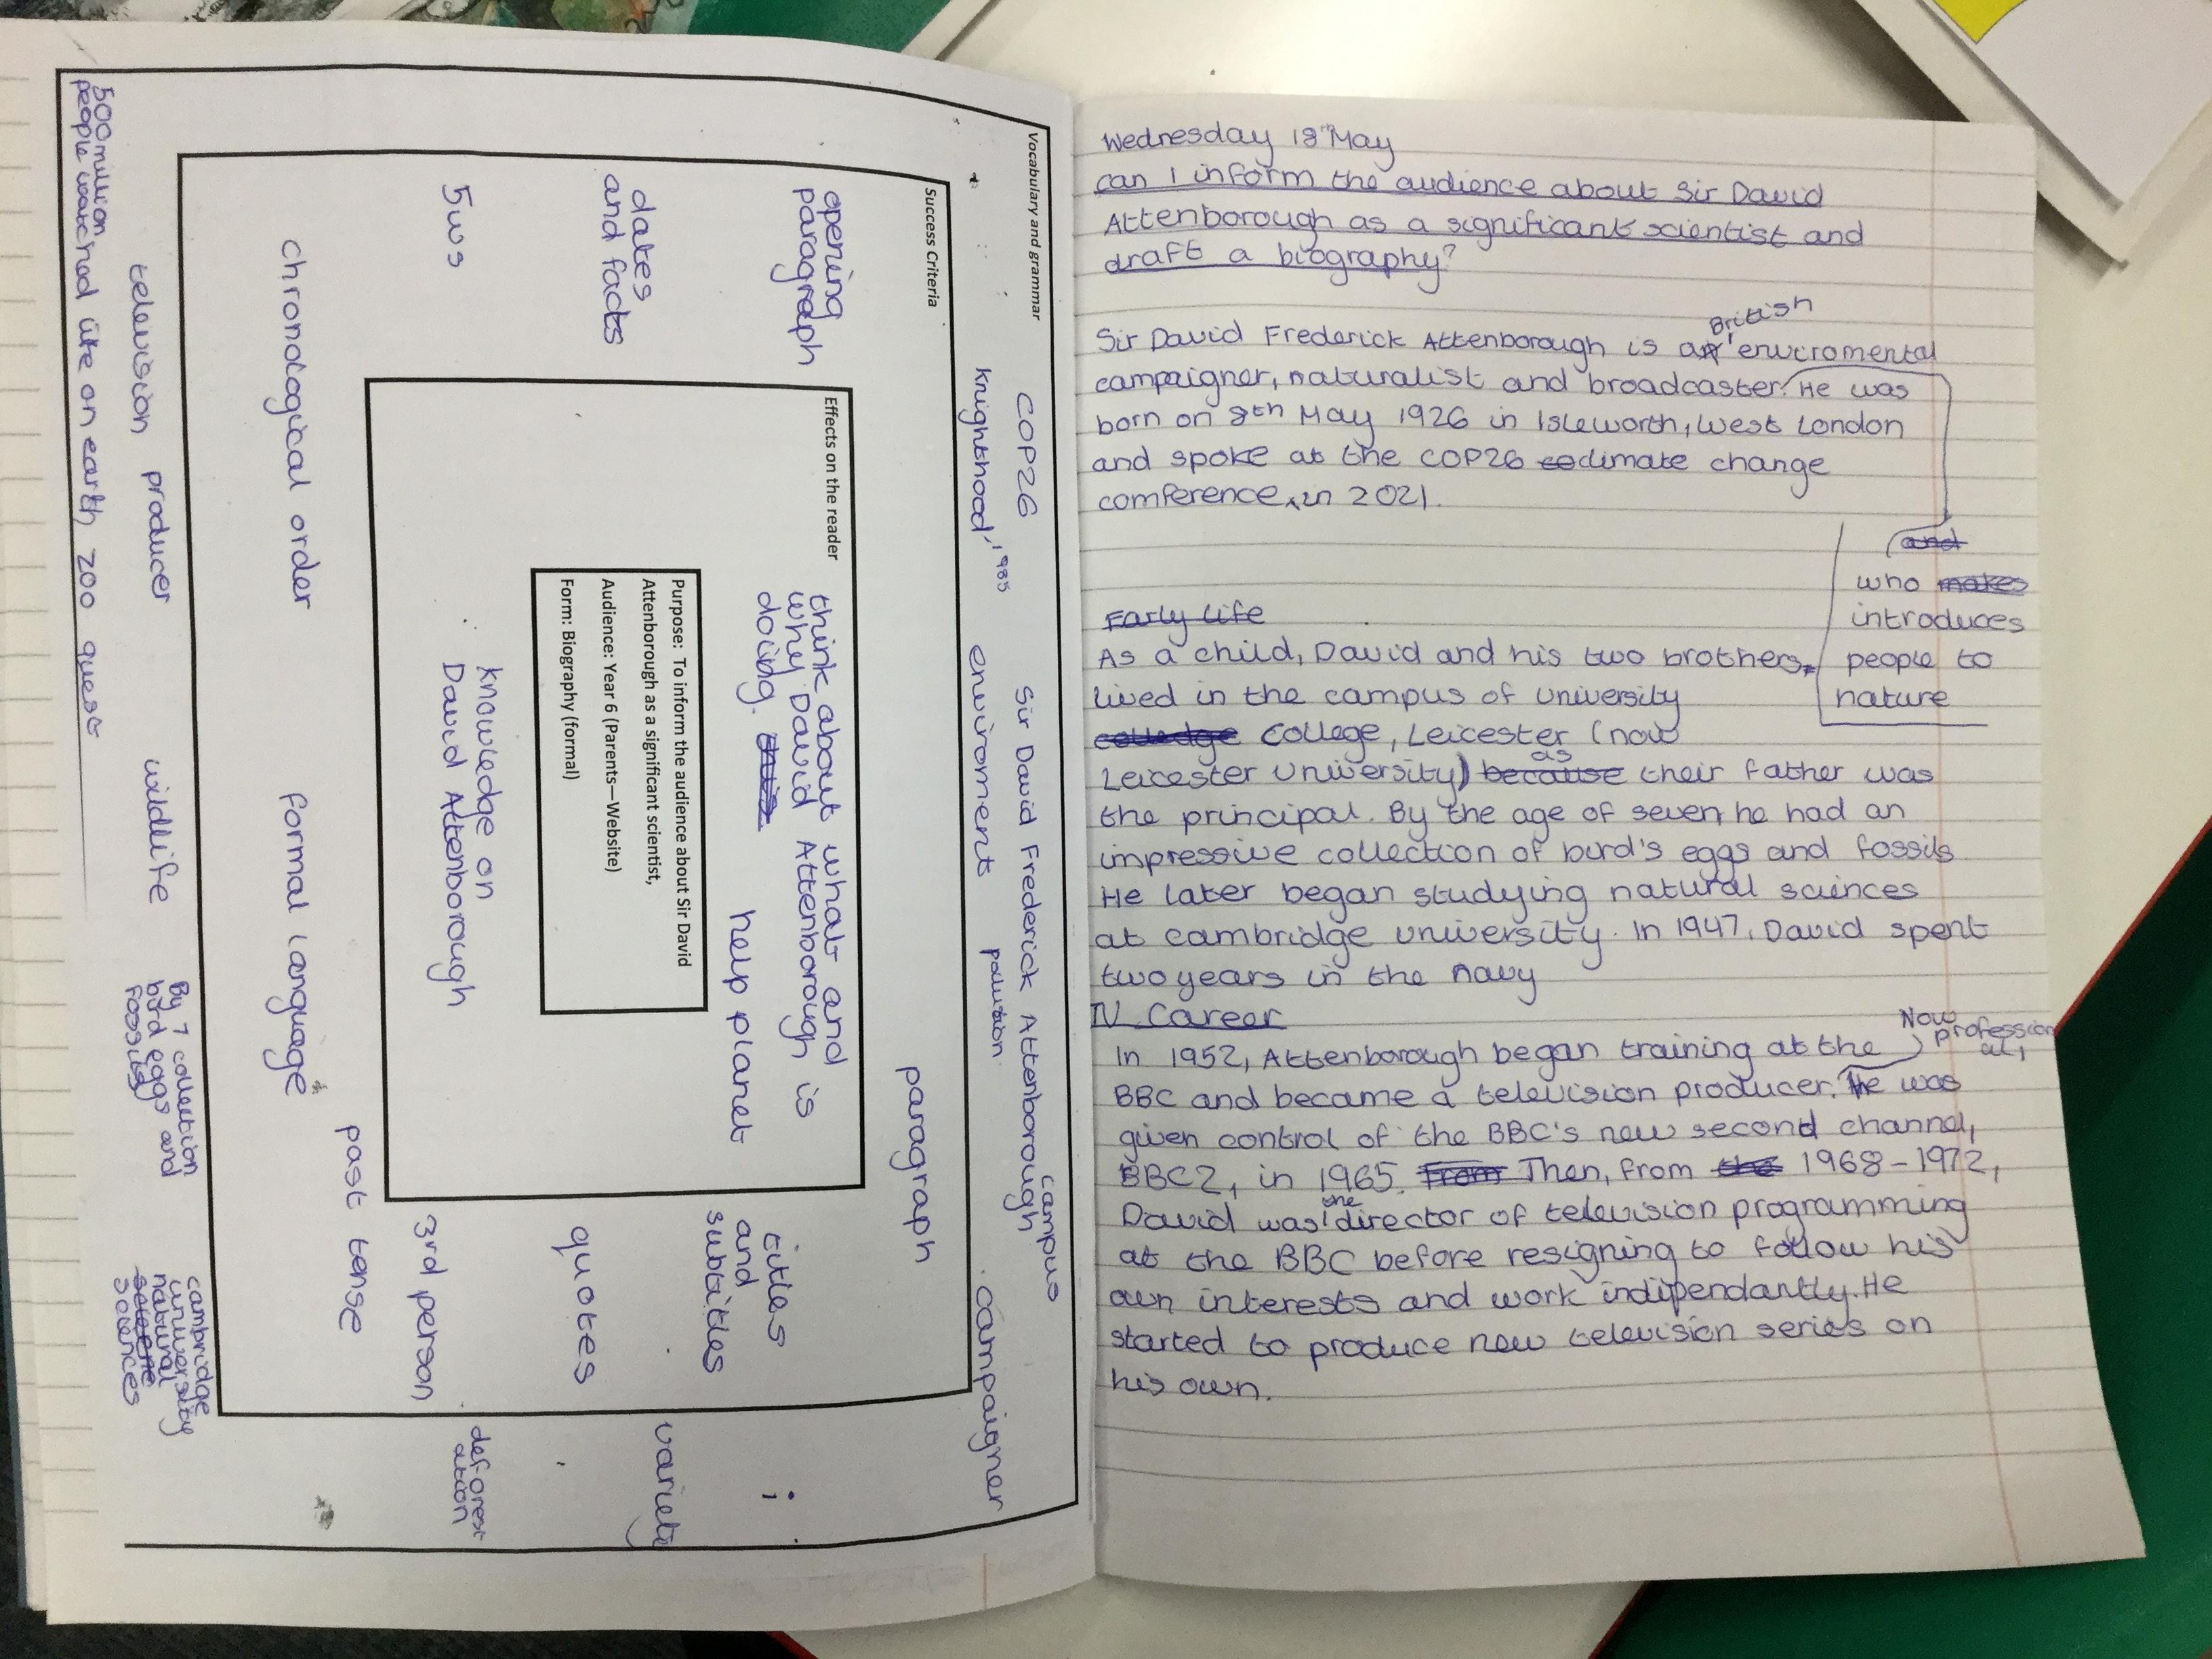 Vocabulary and grammar
COP26
Sir David Frederick Attenborough
campus
Knighthood, 1985
enviroment
pollution
campaigner
Success Criteria
opening
paragraph
paragraph
dates
and facts
titles
and
subtitles
;
variety
5ws
quotes
3rd person
deforest
ation
chronological order
formal language
past tense
Effects on the reader
think about what and
why David Attenborough is
doing.
help planet
Purpose: To inform the audience about Sir David
Attenborough as a significant scientist,
Audience: Year 6 (Parents—Website)
Form: Biography (formal)
knowledge on
David Attenborough
television producer
wildlife
By 7 collection
bird eggs and
fossils
cambridge
university
natural
sciences
500 million
people watched life on earth zoo quest
Wednesday 18th May
can I inform the audience about Sir David
Attenborough as a significant scientist and
draft a biography?
British
Sir David Frederick Attenborough is an enviromental
campaigner, naturalist and broadcaster. He was
born on 8th May 1926 in Isleworth, West London
and spoke at the COP26 co climate change
comference, in 2021.
and
who makes
introduces
people to
nature
Early life
As a child, David and his two brothers,
lived in the campus of University
colledge College, Leicester (now
as
Leicester University) because their father was
the principal. By the age of seven, he had an
impressive collection of bird's eggs and fossils
He later began studying natural sciences
at cambridge university. In 1947, David spent
two years in the navy
TV Career
Now
profession
al,
In 1952, Attenborough began training at the
BBC and became a television producer. He was
given control of the BBC's new second channel,
BBC2, in 1965. From Then, from the 1968-1972,
the
David was director of television programming
at the BBC before resigning to follow his
own interests and work indipendantly. He
started to produce new television series on
his own.